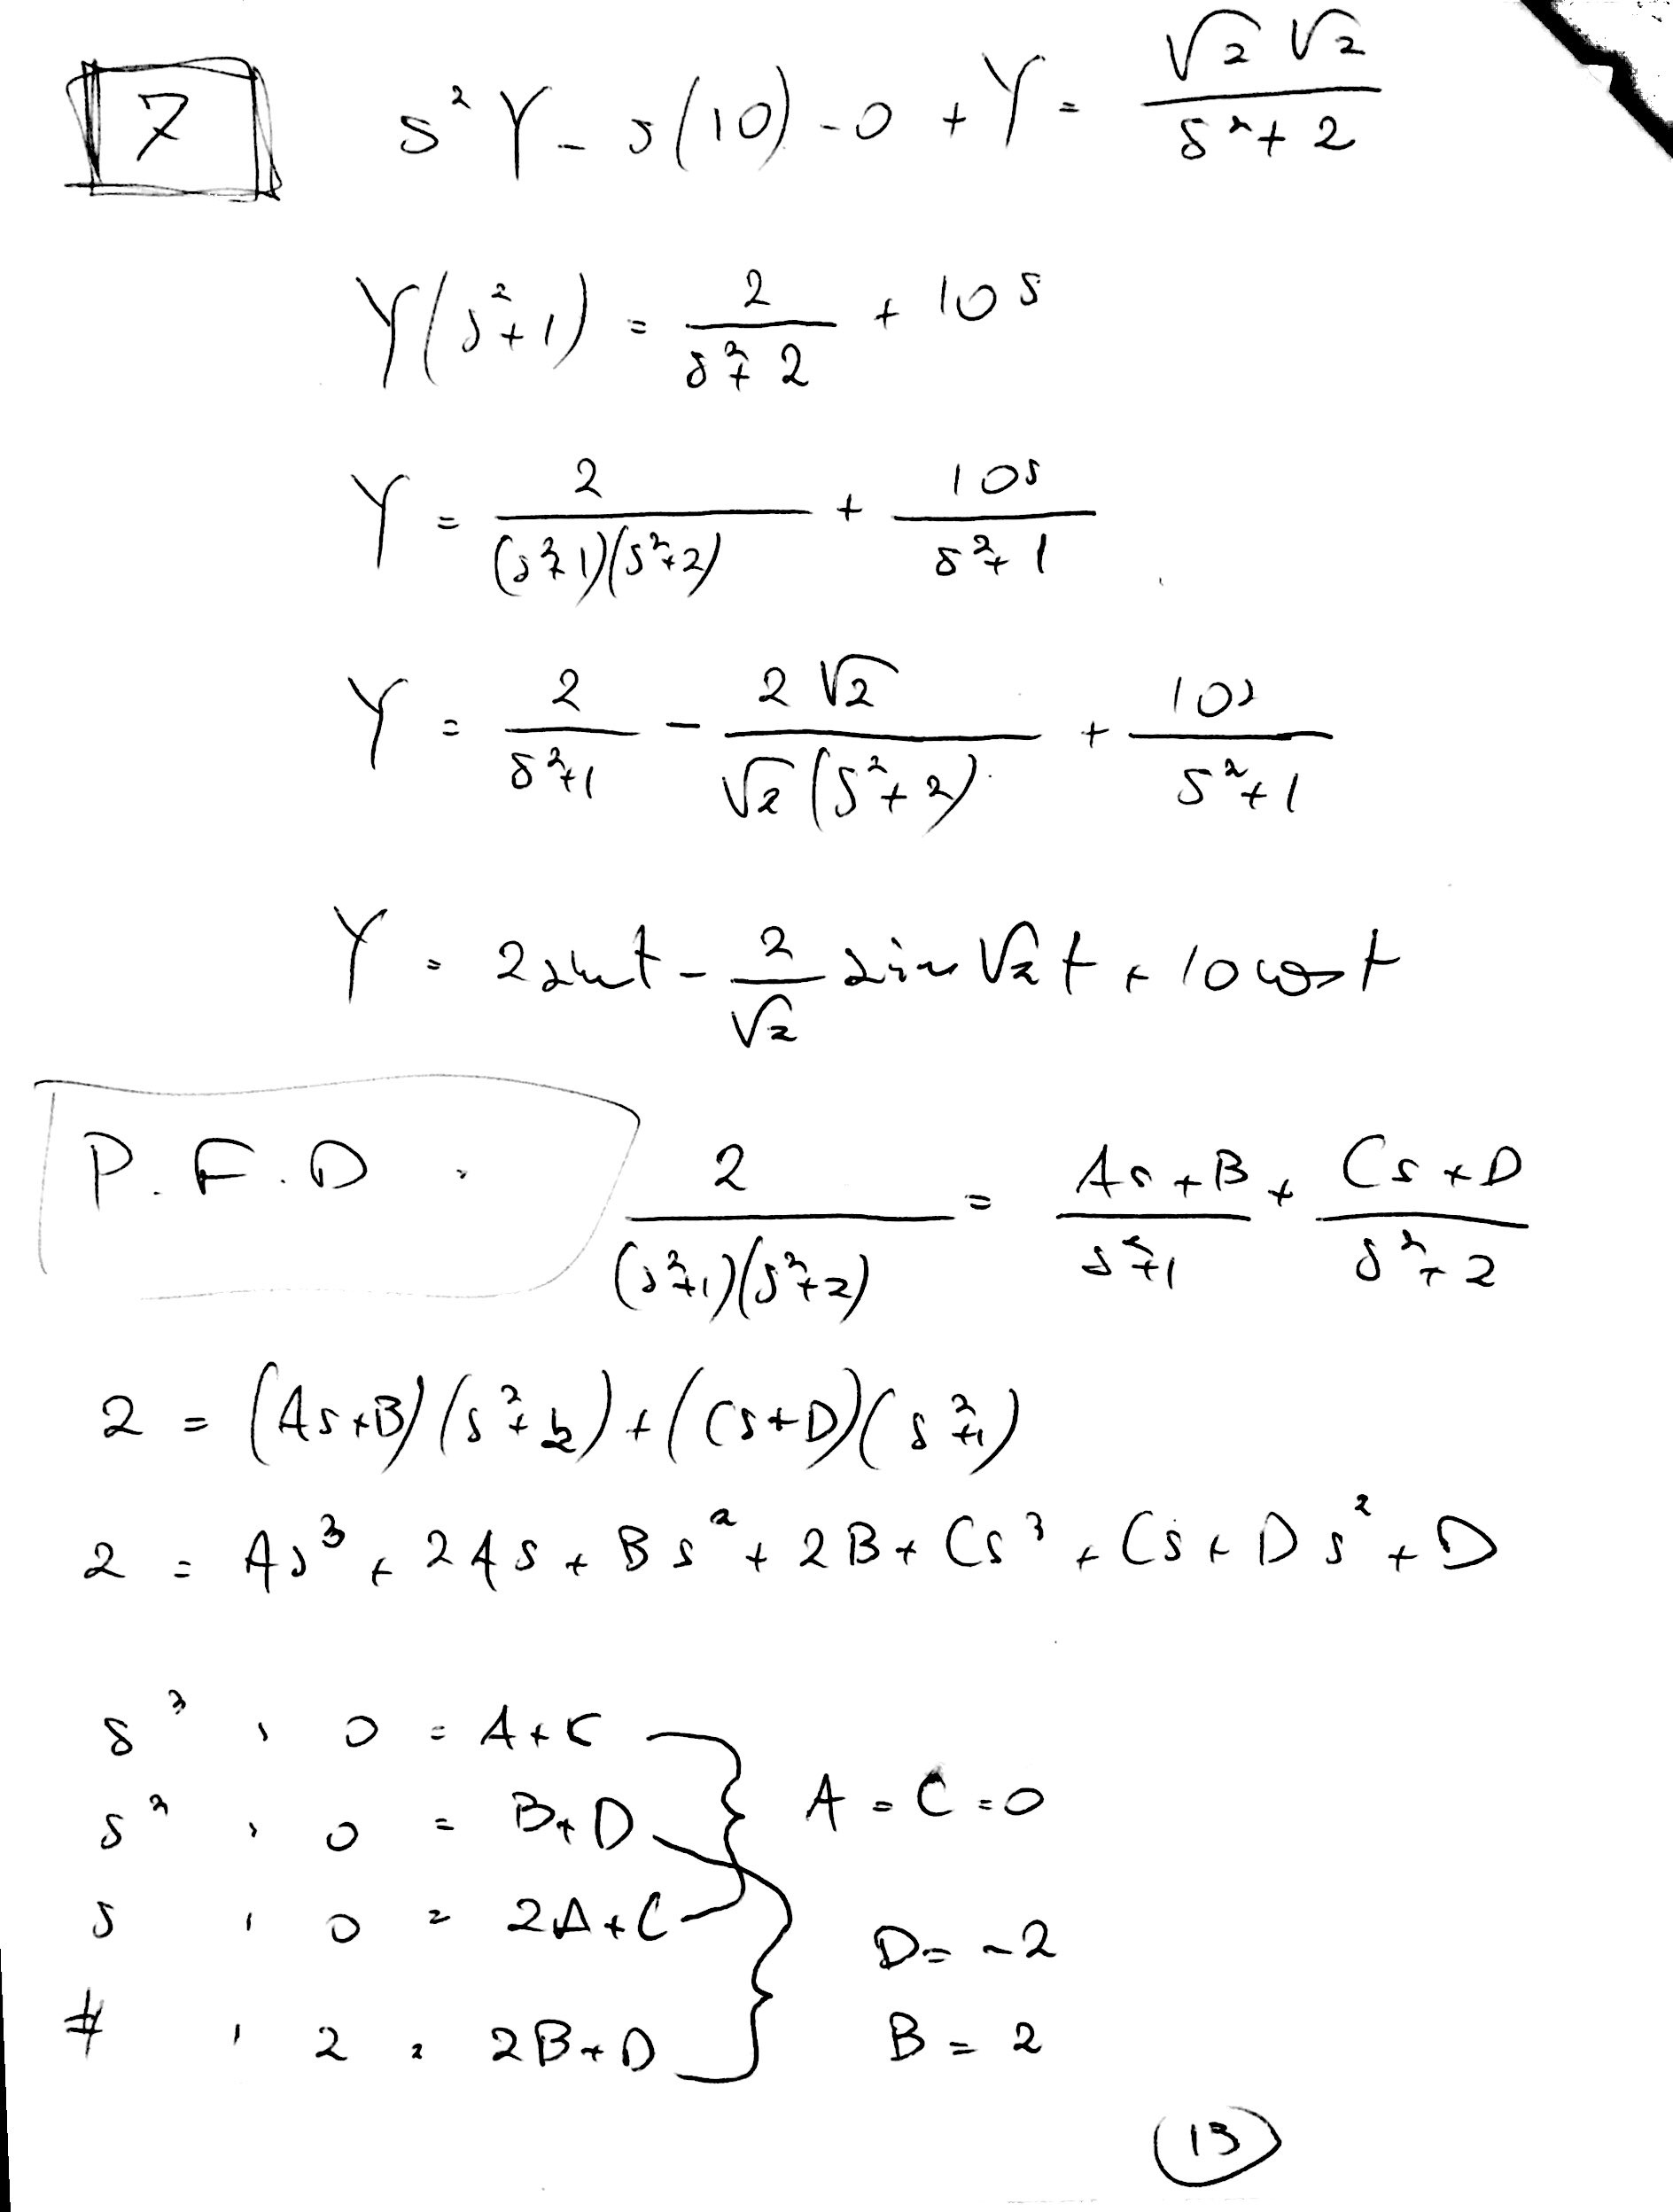 7
s² Y - s(10) - 0 + Y = √2 √2 / s² + 2
Y(s² + 1) = 2 / s² + 2 + 10s
Y = 2 / (s² + 1)(s² + 2) + 10s / s² + 1
Y = 2 / s² + 1 - 2 √2 / √2 (s² + 2) + 10s / s² + 1
Y = 2 sin t - 2 / √2 sin √2 t + 10 cos t
P.F.D : 2 / (s² + 1)(s² + 2) = As + B / s² + 1 + Cs + D / s² + 2
2 = (As + B)(s² + 2) + (Cs + D)(s² + 1)
2 = As³ + 2As + Bs² + 2B + Cs³ + Cs + Ds² + D
s³ : 0 = A + C
A = C = 0
s² : 0 = B + D
s : 0 = 2A + C
D = -2
# : 2 = 2B + D
B = 2
13